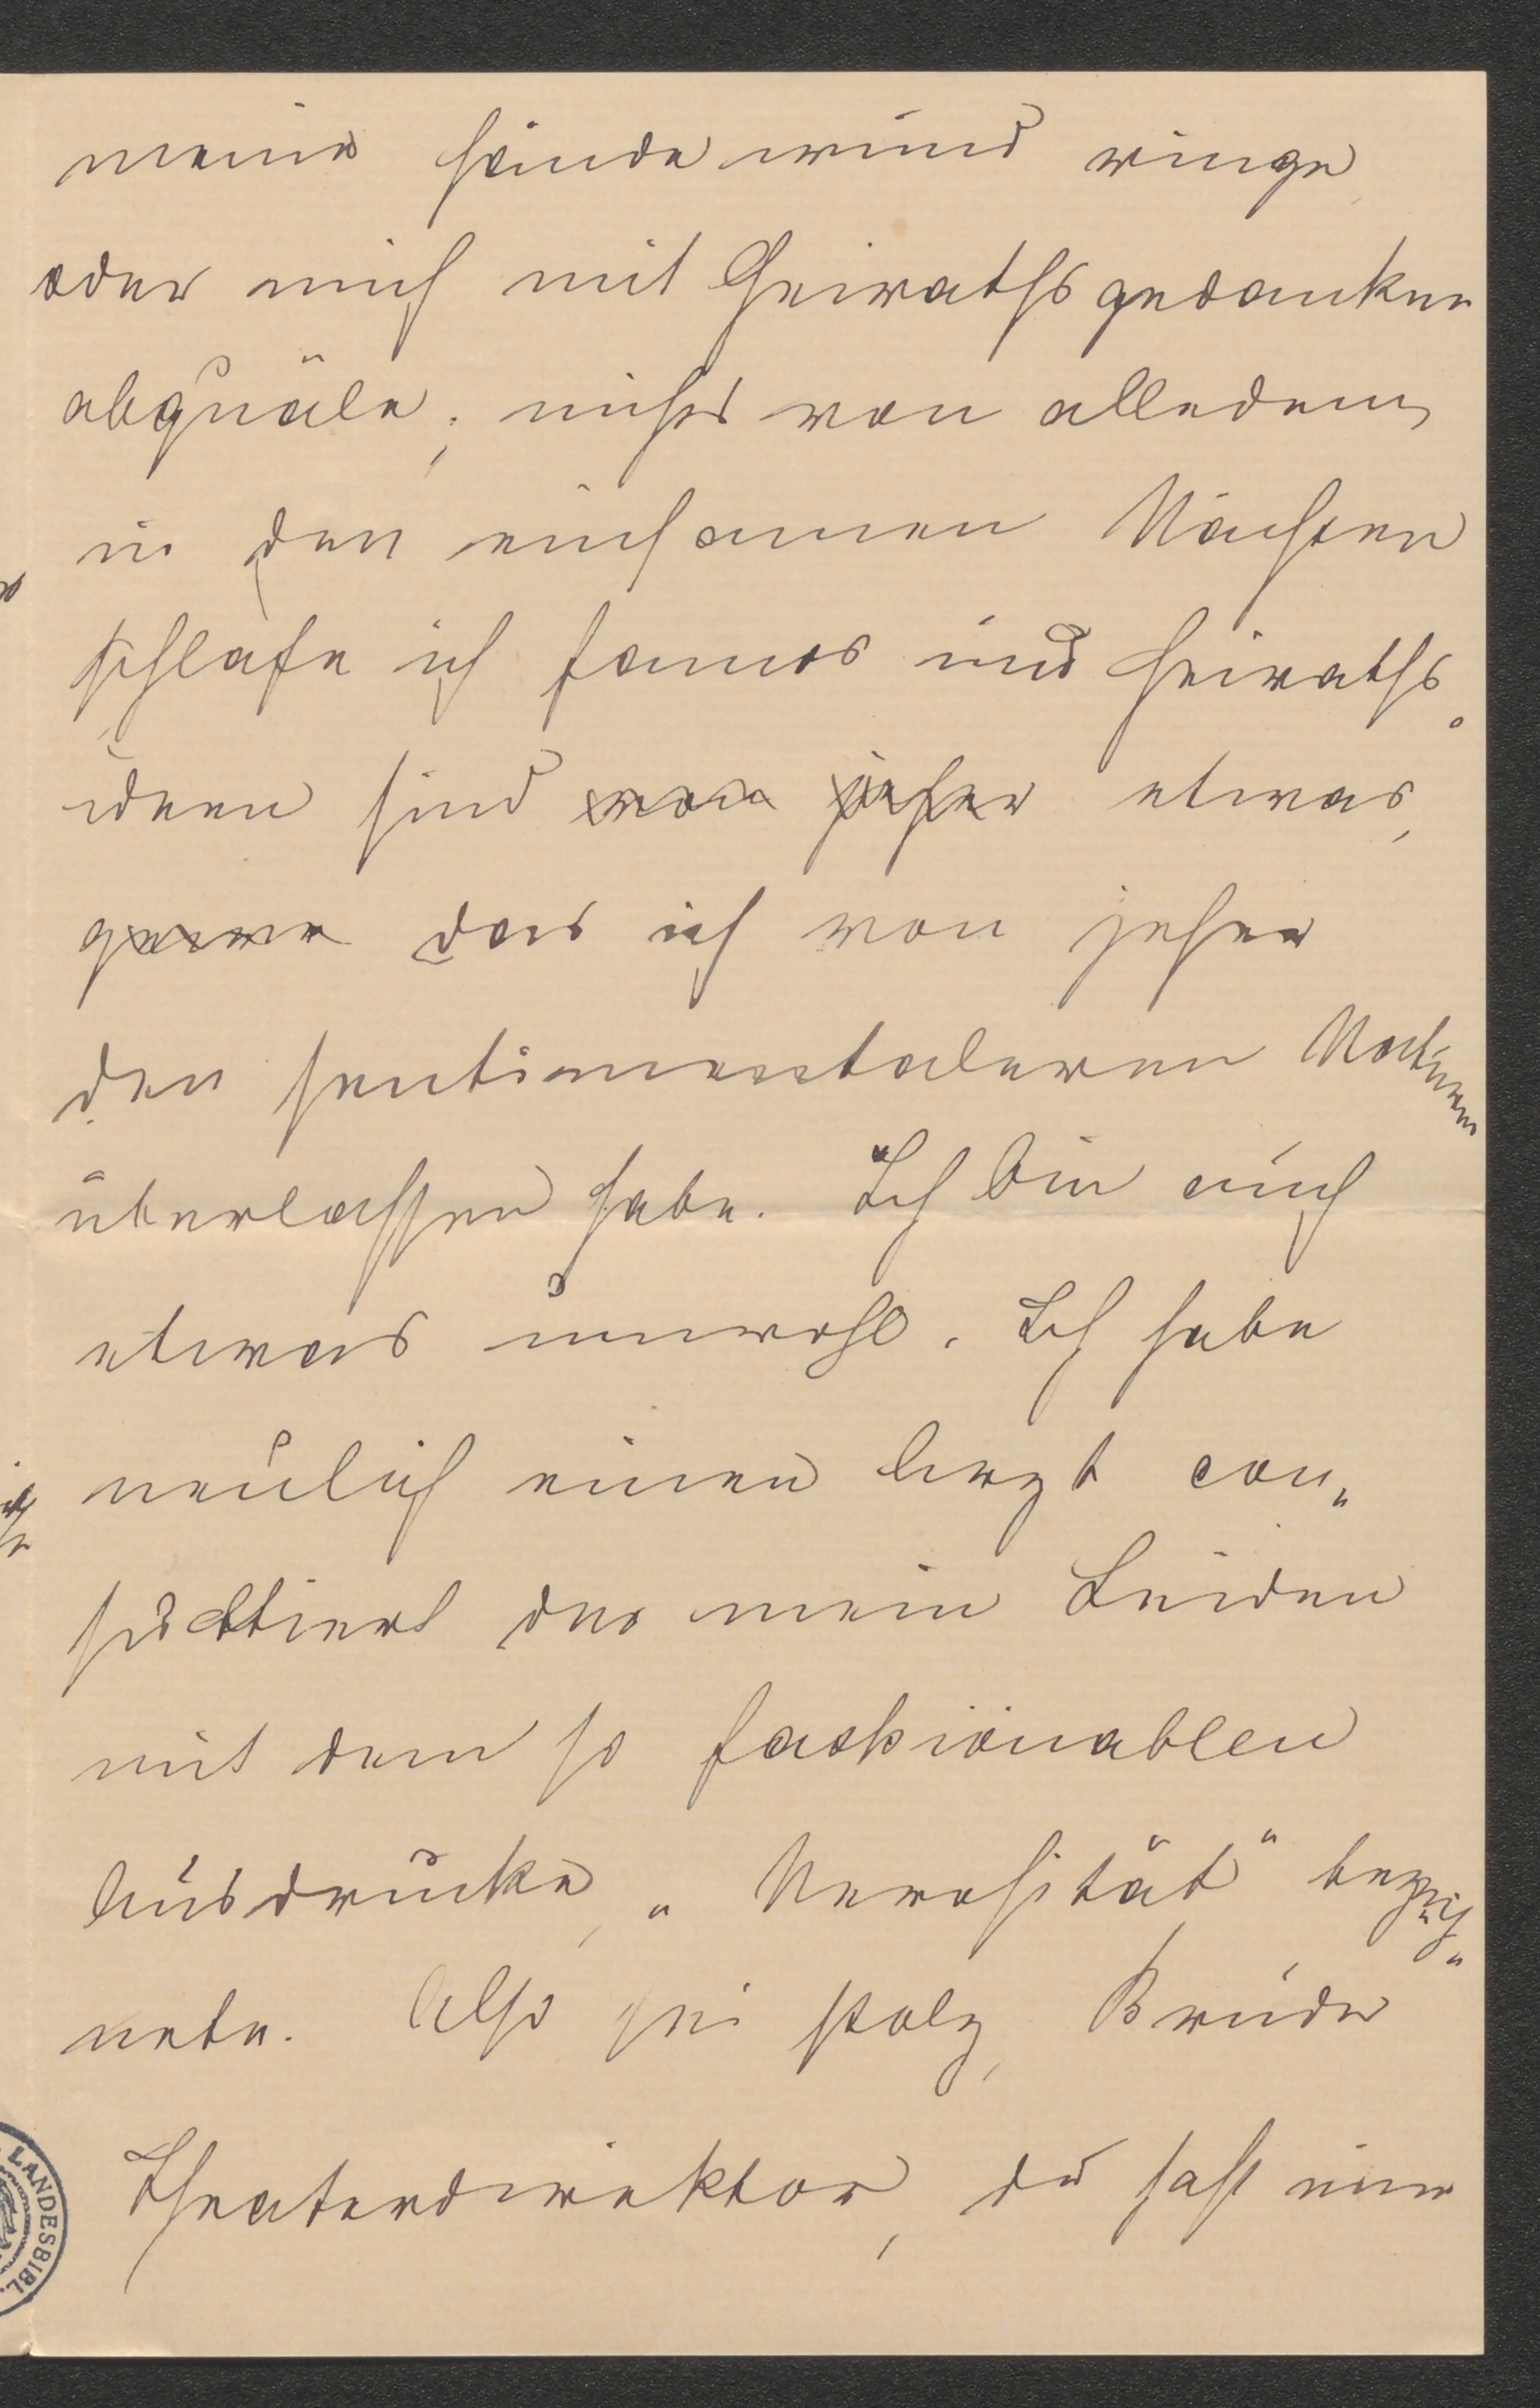 meine Hände wund ringe
oder mich mit Heirathsgedanken
abquäle; nichts von alledem,
in den einsamen Nächten
schlafe ich famos und Heiraths-
ideen sind von jeher etwas,
gerne das ich von jeher
den sentimentaleren Naturen
überlassen habe. Ich bin auch
etwas unwohl. Ich habe
neulich einen Arzt con„
sultiert der mein Leiden
mit dem so fashionablen
Ausdrucke, „Nervosität" bezeich„
nete. Also sei stolz, Bruder
Theaterdirektor, du hast einen
LANDESBIBL.